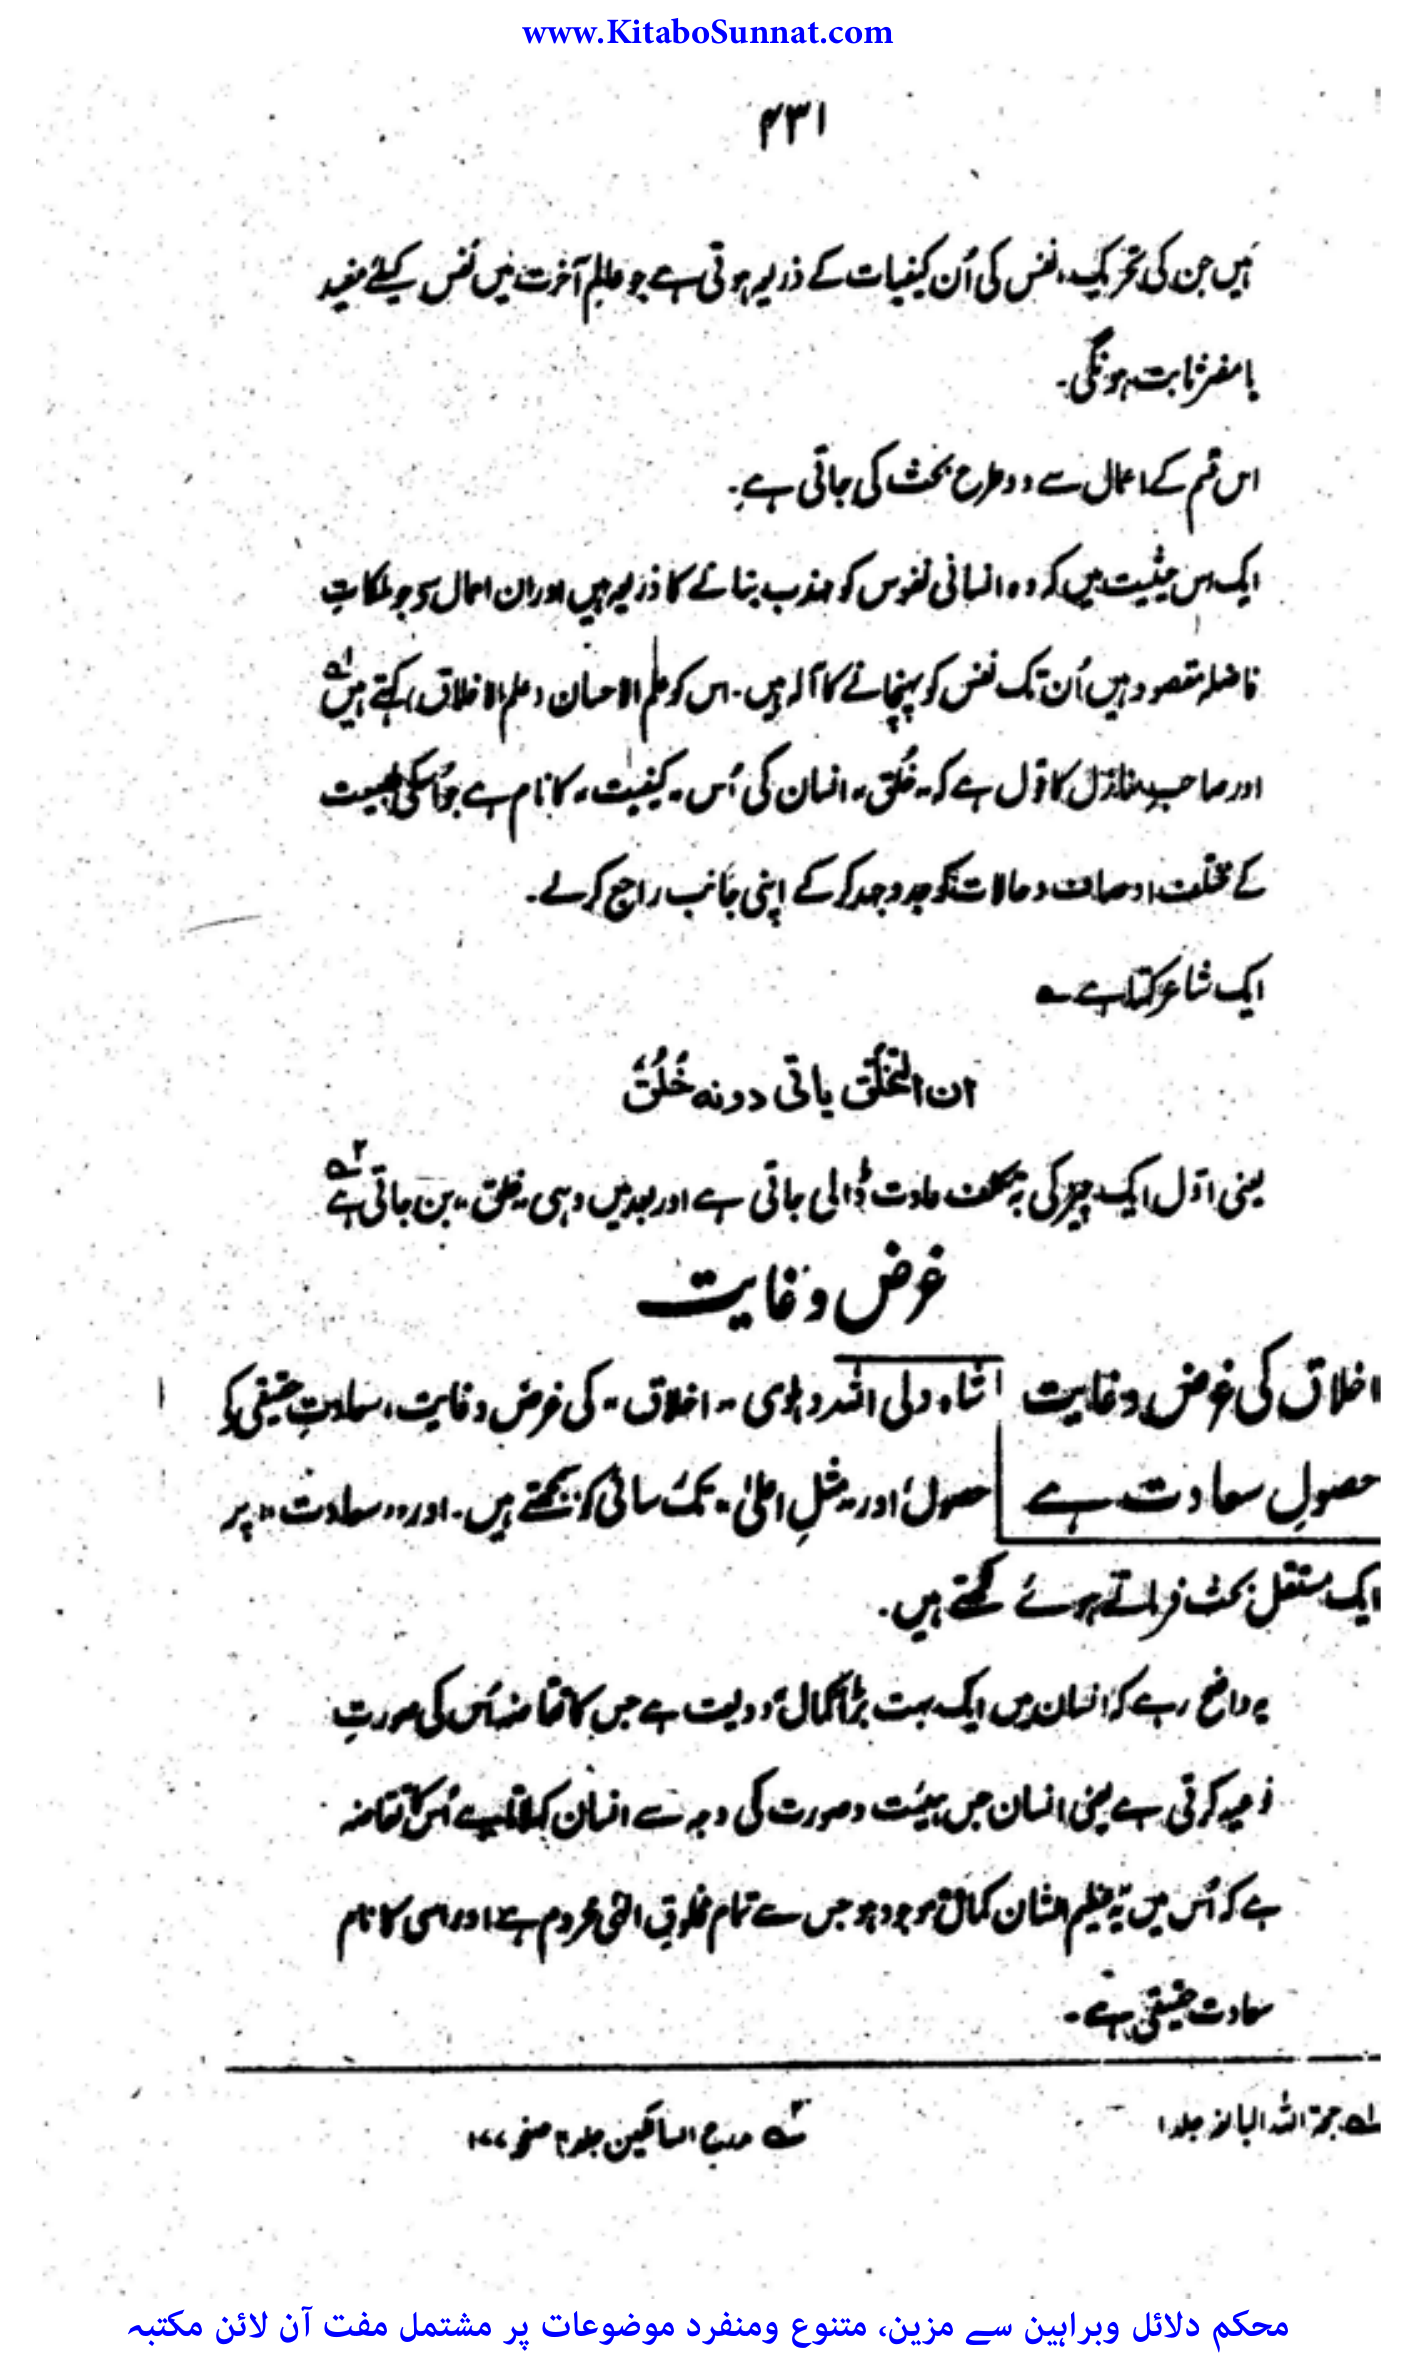 www.KitaboSunnat.com
۴۳۱
ہیں جن کی تحریک، نفس کی اُن کیفیات کے ذریعہ ہوتی ہے جو عالمِ آخرت میں نفس کیلئے مفید
یا مضر ثابت ہونگی۔
اس قسم کے اعمال سے دو طرح بحث کی جاتی ہے۔
ایک اس حیثیت میں کہ وہ انسانی نفوس کو مہذب بنانے کا ذریعہ ہیں اور ان اعمال سے جو ملکاتِ
فاضلہ مقصود ہیں اُن تک نفس کو پہنچانے کا آلہ ہیں۔ اس کو علم الاحسان (علم الاخلاق) کہتے ہیں ۱؎
اور صاحبِ منازل کا قول ہے کہ "خُلق" انسان کی اُس "کیفیت" کا نام ہے جو اُسکی طبیعت
کے مختلف اوصاف و حالات کو جد و جہد کر کے اپنی جانب راجع کرلے۔
ایک شاعر کہتا ہے ؎
ان التخلُّق یاتی دونہ خُلُقٌ
یعنی اوّل ایک چیز کی بہ تکلف عادت ڈالی جاتی ہے اور بعد میں وہی "خلق" بن جاتی ہے ۲؎
غرض و غایت
اخلاق کی غرض و غایت
حصولِ سعادت ہے
شاہ ولی اللہ دہلوی "اخلاق" کی غرض و غایت، سعادتِ حقیقی کے
حصول، اور "مثلِ اعلیٰ" تک رسائی کو سمجھتے ہیں۔ اور "سعادت" پر
ایک مستقل بحث فرماتے ہوئے لکھتے ہیں۔
یہ واضح رہے کہ انسان میں ایک بہت بڑا کمال ودیعت ہے جس کا تقاضہ اُس کی صورتِ
نوعیہ کرتی ہے یعنی انسان جس ہیئت و صورت کی وجہ سے انسان کہلاتا ہے اُس کا تقاضہ
ہے کہ اُس میں یہ عظیم الشان کمال موجود ہو جس سے تمام مخلوقِ الٰہی محروم ہے، اور اسی کا نام
سعادت حقیقی ہے۔
۱؎ حجۃ اللہ البالغہ جلد ۱
۲؎ مدارج السالکین جلد ۲ صفحہ ۱۷۷
محکم دلائل وبراہین سے مزین، متنوع ومنفرد موضوعات پر مشتمل مفت آن لائن مکتبہ